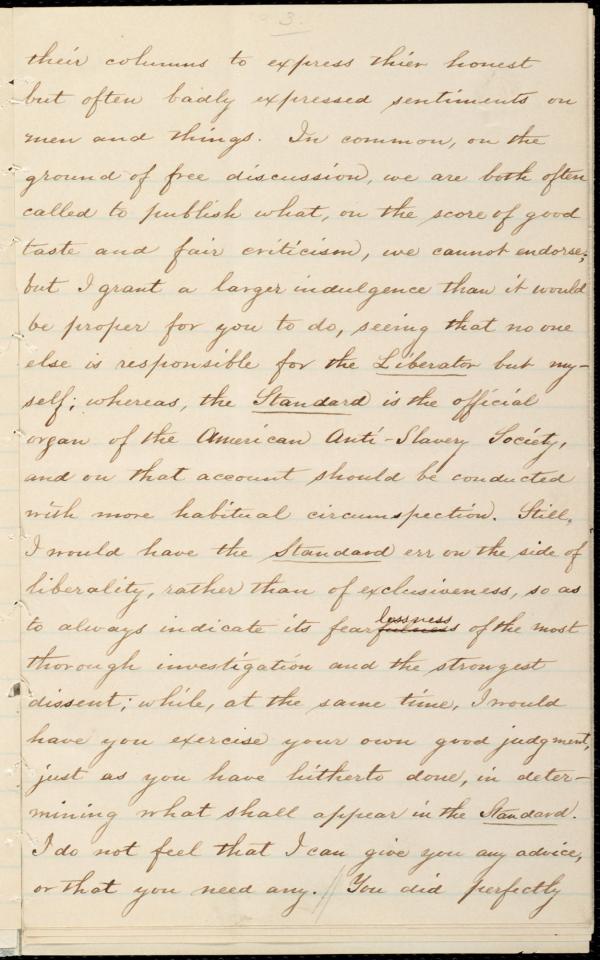 3.
their columns to express thier honest
but often badly expressed sentiments on
men and things. In common, on the
ground of free discussion, we are both often
called to publish what, on the score of good
taste and fair criticism, we cannot endorse;
but I grant a larger indulgence than it would
be proper for you to do, seeing that no one
else is responsible for the Liberator but my-
self; whereas, the Standard is the official
organ of the American Anti-Slavery Society,
and on that account should be conducted
with more habitual circumspection. Still,
I would have the Standard err on the side of
liberality, rather than of exclusiveness, so as
to always indicate its fearfulness lessness of the most
thorough investigation and the strongest
dissent; while, at the same time, I would
have you exercise your own good judgment,
just as you have hitherto done, in deter-
mining what shall appear in the Standard.
I do not feel that I can give you any advice,
or that you need any. // You did perfectly